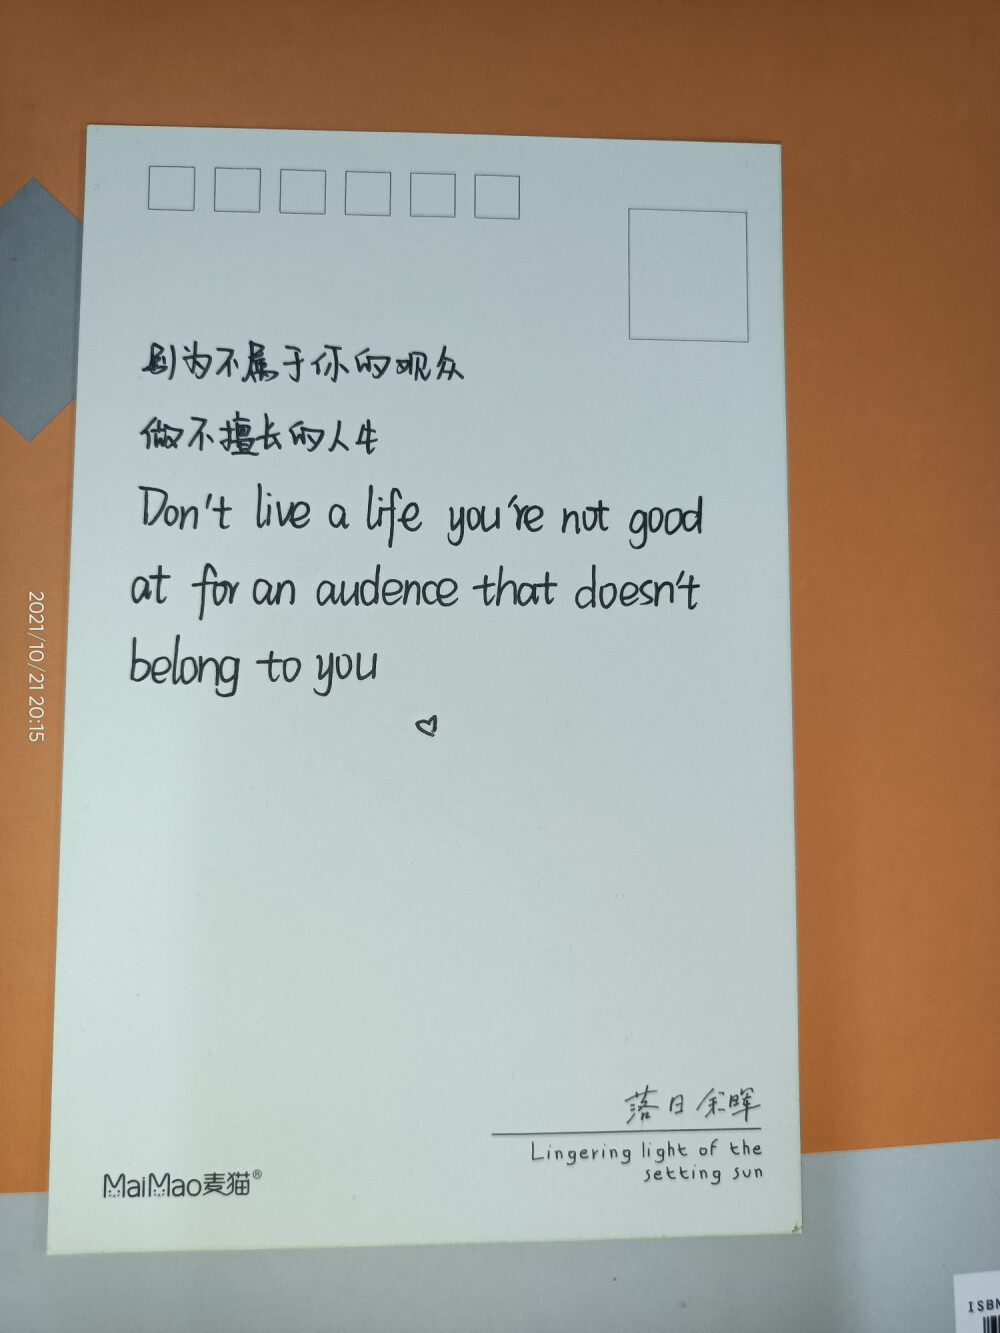 别为不属于你的观众
做不擅长的人生
Don't live a life you're not good
at for an audence that doesn't
belong to you
落日余晖
Lingering light of the
setting sun
MaiMao麦猫®
2021/10/21 20:15
ISBN